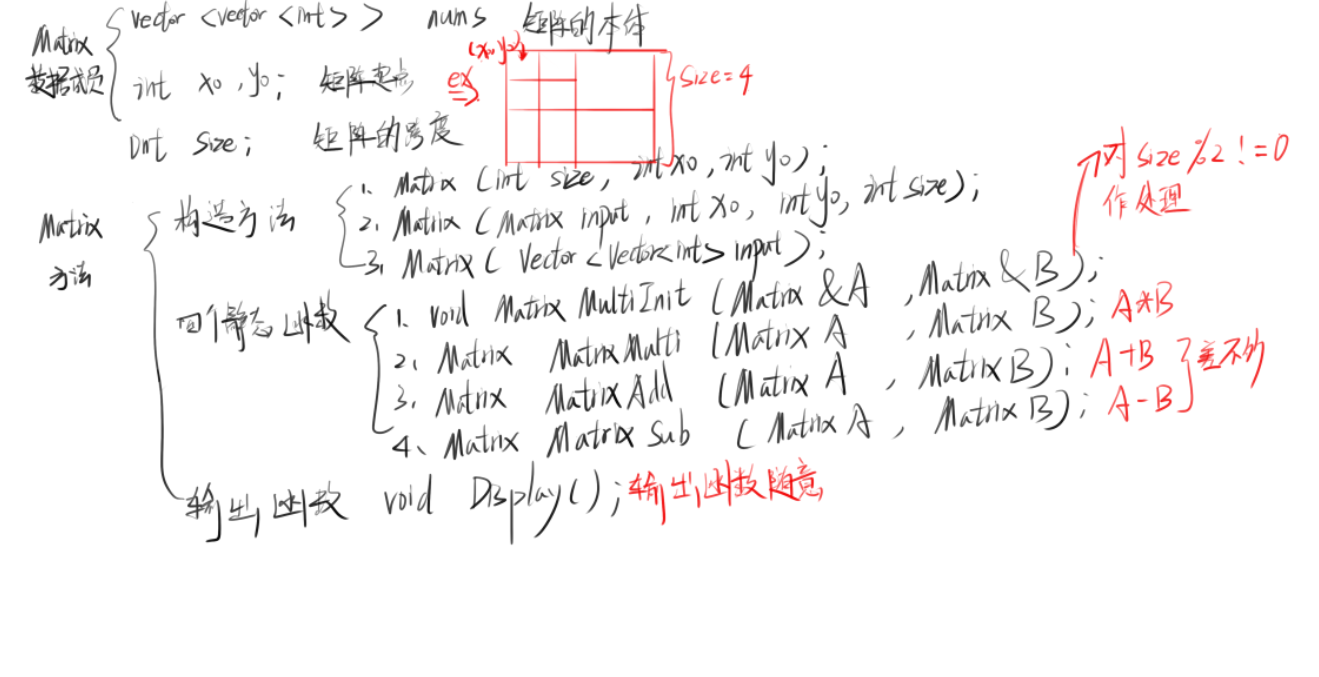 vector <vector <int> > nums 矩阵的本体
Matrix
数据成员
(x0, y0)
int x0, y0; 矩阵起点 ex
size=4
int size; 矩阵的跨度
对size%2!=0
作处理
Matrix
方法
构造方法
1. Matrix (int size, int x0, int y0);
2. Matrix (Matrix input, int x0, int y0, int size);
3. Matrix ( Vector <Vector<int> input);
四个静态函数
1. void Matrix MultiInit (Matrix &A , Matrix & B );
2、Matrix MatrixMulti (Matrix A , Matrix B ); A*B
3、Matrix MatrixAdd (Matrix A , Matrix B); A+B
差不多
4、Matrix Matrix Sub ( Matrix A , Matrix B); A-B
输出函数 void Display(); 输出函数随意